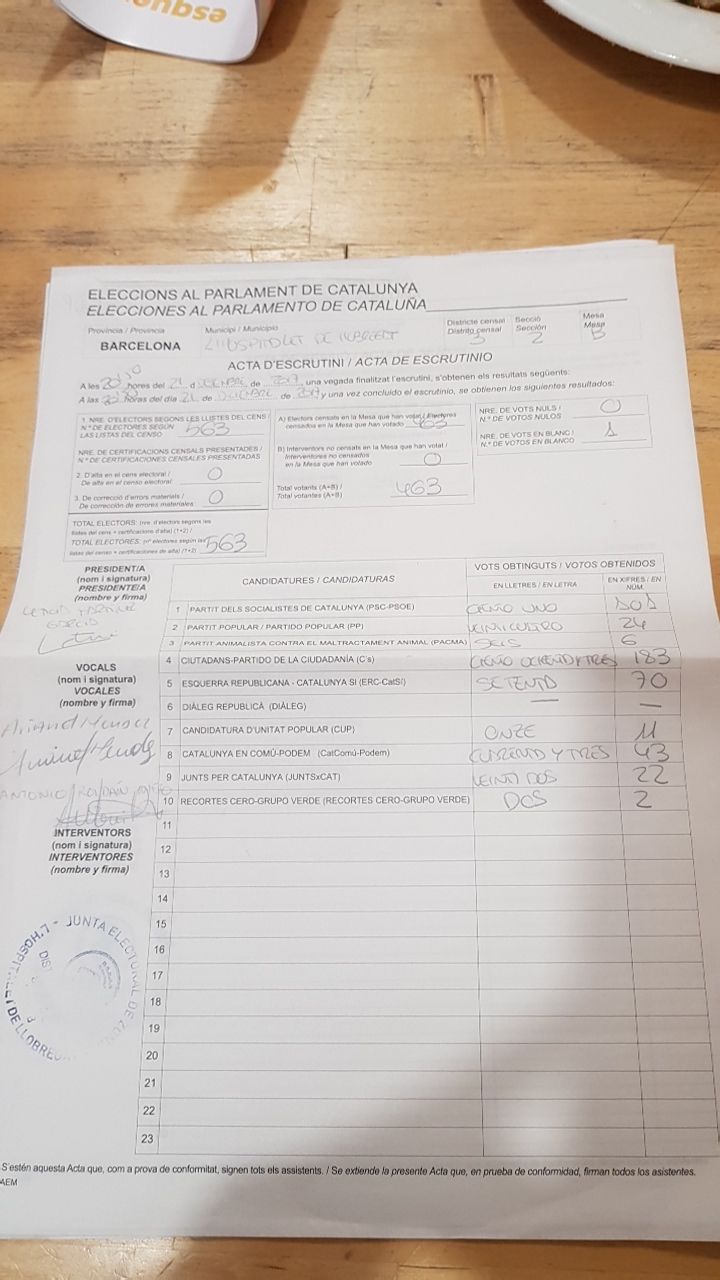 esquo
ELECCIONS AL PARLAMENT DE CATALUNYA
ELECCIONES AL PARLAMENTO DE CATALUÑA
Província / Provincia
Municipi / Municipio
Districte censal
Distrito censal
Secció
Sección
Mesa
Mesa
BARCELONA
L'HOSPITALET DE LLOBREGAT
3
2
B
ACTA D'ESCRUTINI / ACTA DE ESCRUTINIO
A les 20:30 hores del 21 d DICIEMBRE de 2017, una vegada finalitzat l'escrutini, s'obtenen els resultats següents:
A las 20:30 horas del día 21 de DICIEMBRE de 2017 y una vez concluido el escrutinio, se obtienen los siguientes resultados:
1. NRE. D'ELECTORS SEGONS LES LLISTES DEL CENS /
N.º DE ELECTORES SEGÚN
LAS LISTAS DEL CENSO
563
NRE. DE CERTIFICACIONS CENSALS PRESENTADES /
N.º DE CERTIFICACIONES CENSALES PRESENTADAS
2. D'alta en el cens electoral /
De alta en el censo electoral:
0
3. De correcció d'errors materials /
De corrección de errores materiales:
0
TOTAL ELECTORS: (nre. d'electors segons les
llistes del cens + certificacions d'alta) (1+2) /
TOTAL ELECTORES: (nº electores según las
listas del censo + certificaciones de alta) (1+2)
563
A) Electors censats en la Mesa que han votat / Electores
censados en la Mesa que han votado
463
B) Interventors no censats en la Mesa que han votat /
Interventores no censados
en la Mesa que han votado
0
Total votants (A+B) /
Total votantes (A+B)
463
NRE. DE VOTS NULS /
N.º DE VOTOS NULOS
0
NRE. DE VOTS EN BLANC /
N.º DE VOTOS EN BLANCO
1
PRESIDENT/A
(nom i signatura)
PRESIDENTE/A
(nombre y firma)
GARCIA
VOCALS
(nom i signatura)
VOCALES
(nombre y firma)
ANTONIO ROLDÁN
INTERVENTORS
(nom i signatura)
INTERVENTORES
(nombre y firma)
L'HOSPITALET DE LLOBRE - JUNTA ELECTORAL DE ZO
DIS
CANDIDATURES / CANDIDATURAS
VOTS OBTINGUTS / VOTOS OBTENIDOS
EN LLETRES / EN LETRA
EN XIFRES / EN NÚM.
1 PARTIT DELS SOCIALISTES DE CATALUNYA (PSC-PSOE) CIENTO UNO 101
2 PARTIT POPULAR / PARTIDO POPULAR (PP) VEINTICUATRO 24
3 PARTIT ANIMALISTA CONTRA EL MALTRACTAMENT ANIMAL (PACMA) SEIS 6
4 CIUTADANS-PARTIDO DE LA CIUDADANÍA (C's) CIENTO OCHENTAYTRES 183
5 ESQUERRA REPUBLICANA - CATALUNYA SÍ (ERC-CatSí) SETENTA 70
6 DIÀLEG REPUBLICÀ (DIÀLEG) — —
7 CANDIDATURA D'UNITAT POPULAR (CUP) ONZE 11
8 CATALUNYA EN COMÚ-PODEM (CatComú-Podem) CUARENTA Y TRES 43
9 JUNTS PER CATALUNYA (JUNTSxCAT) VEINTI DOS 22
10 RECORTES CERO-GRUPO VERDE (RECORTES CERO-GRUPO VERDE) DOS 2
11
12
13
14
15
16
17
18
19
20
21
22
23
S'estén aquesta Acta que, com a prova de conformitat, signen tots els assistents. / Se extiende la presente Acta que, en prueba de conformidad, firman todos los asistentes.
AEM